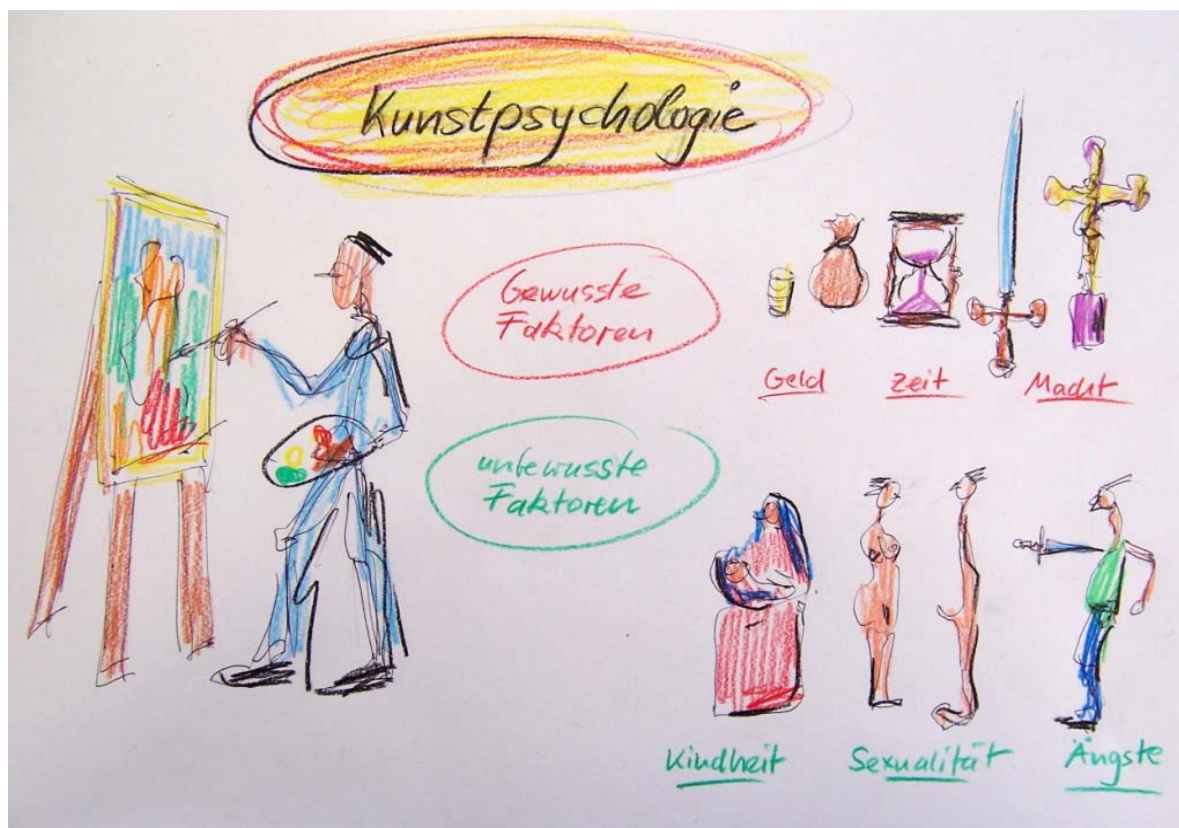 Kunstpsychologie
bewusste
Faktoren
Geld Zeit Macht
unbewusste
Faktoren
Kindheit Sexualität Ängste